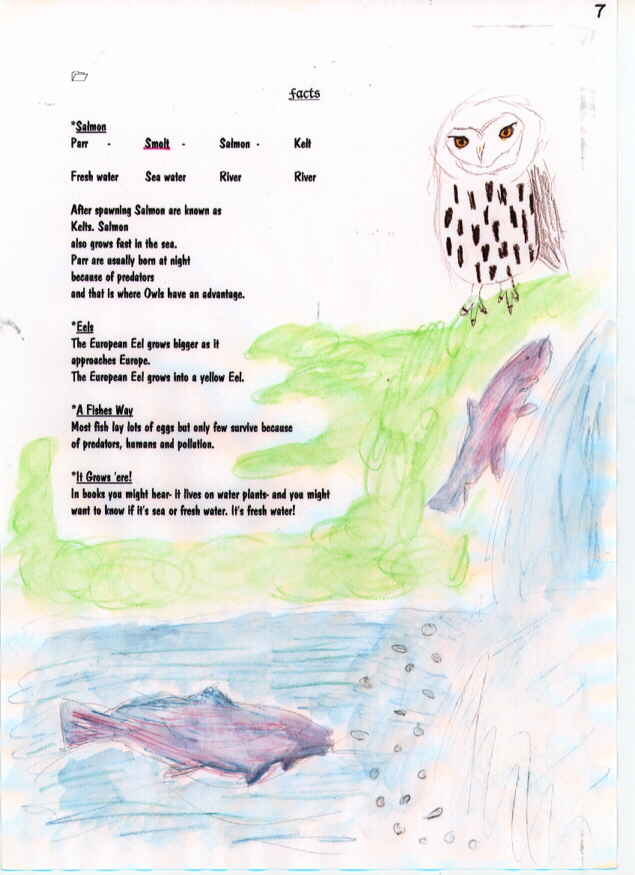 7
facts
*Salmon
Parr - Smolt - Salmon - Kelt
Fresh water Sea water River River
After spawning Salmon are known as
Kelts. Salmon
also grows fast in the sea.
Parr are usually born at night
because of predators
and that is where Owls have an advantage.
*Eels
The European Eel grows bigger as it
approaches Europe.
The European Eel grows into a yellow Eel.
*A Fishes Way
Most fish lay lots of eggs but only few survive because
of predators, humans and pollution.
*It Grows 'ere!
In books you might hear- it lives on water plants- and you might
want to know if it's sea or fresh water. It's fresh water!